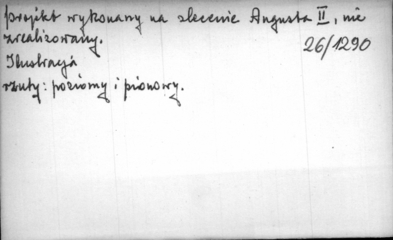 projekt wykonany na zlecenie Augusta II, nie
zrealizowany.
26/1290
Ilustracja
rzuty: poziomy i pionowy.